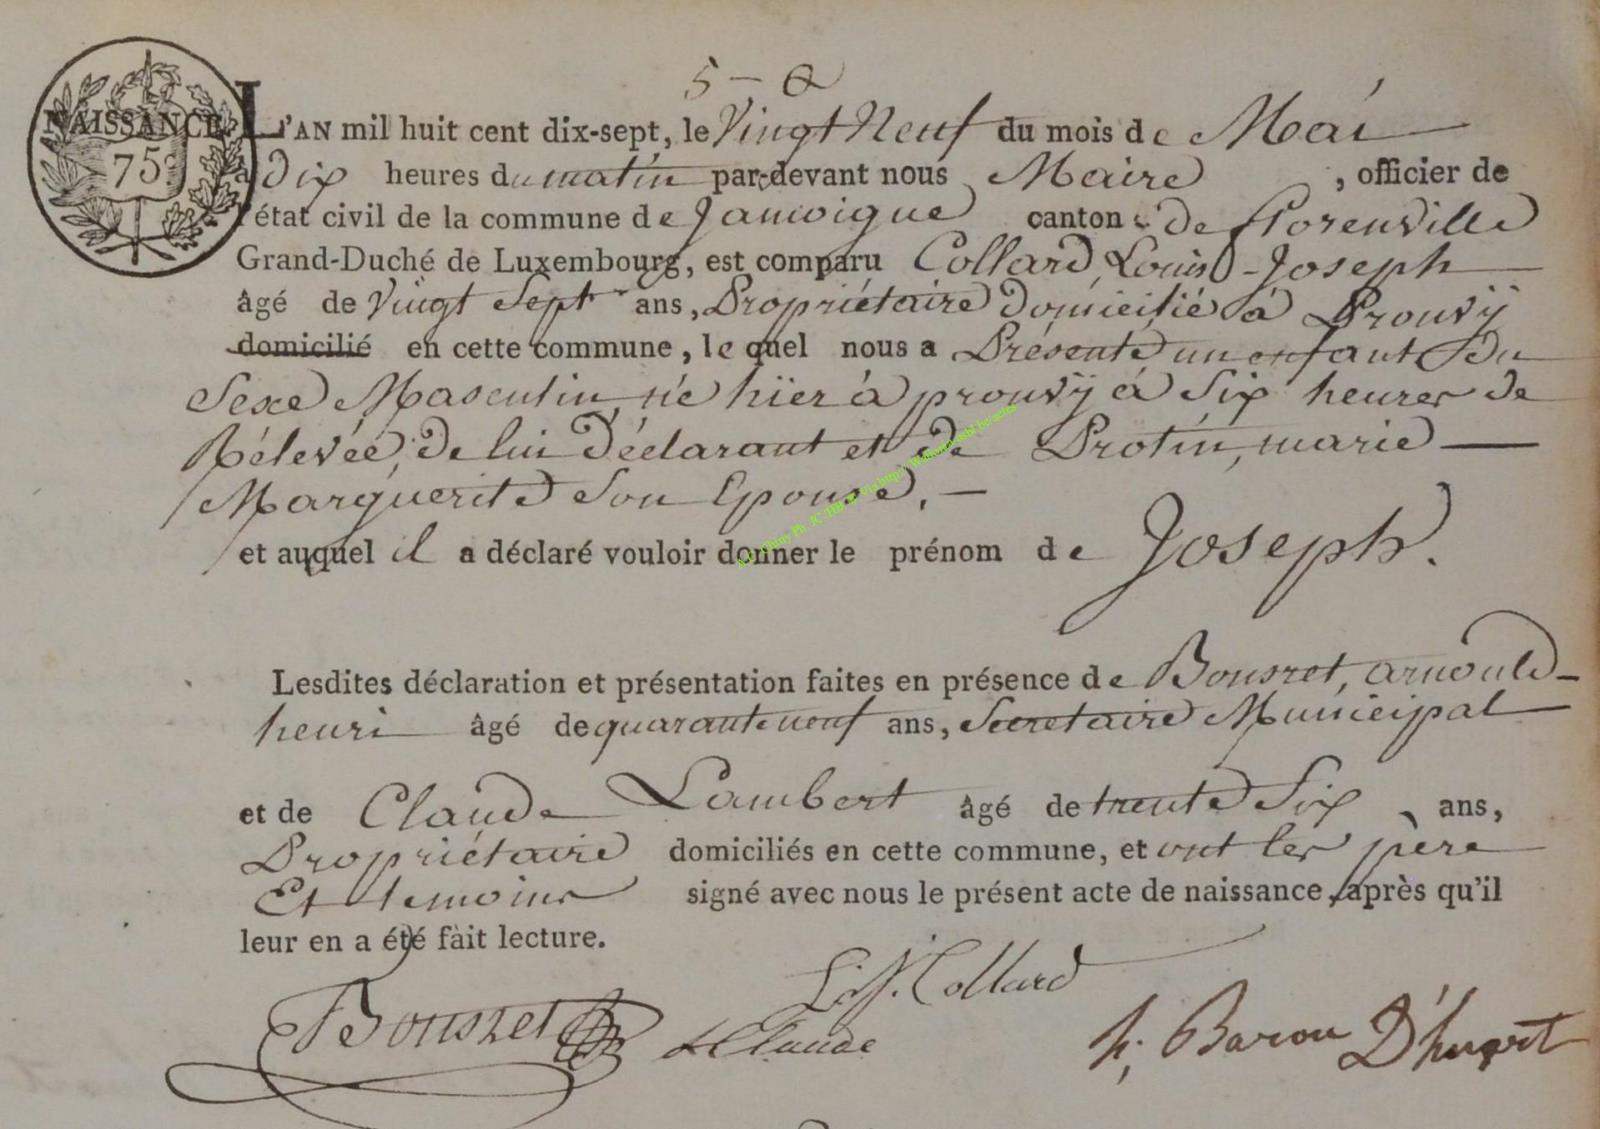 5 - &
NAISSANCE L'AN mil huit cent dix-sept, le Vingt Neuf du mois de Mai
75c à Dix heures du matin par-devant nous Maire, officier de
l'état civil de la commune de Jamoigne canton de florenville
Grand-Duché de Luxembourg, est comparu Collard, Louis-Joseph
âgé de Vingt Sept ans, Propriétaire domicilié à Prouvÿ
domicilié en cette commune, lequel nous a Présenté un enfant du
Sexe Masculin, né hïer à prouvÿ à Six heures de
Rélevée, de lui déclarant et de Protin, marie
Marguerite Son Epouse, -
et auquel il a déclaré vouloir donner le prénom de Joseph.
Lesdites déclaration et présentation faites en présence de Bousret, arnould-
henri âgé de quarante neuf ans, Secretaire Municipal
et de Claude Lambert âgé de trente Six ans,
Propriétaire domiciliés en cette commune, et ont les père
Et temoins signé avec nous le présent acte de naissance, après qu'il
leur en a été fait lecture.
L. J. Collard
Bousret
L Claude
h; Baron D'huart